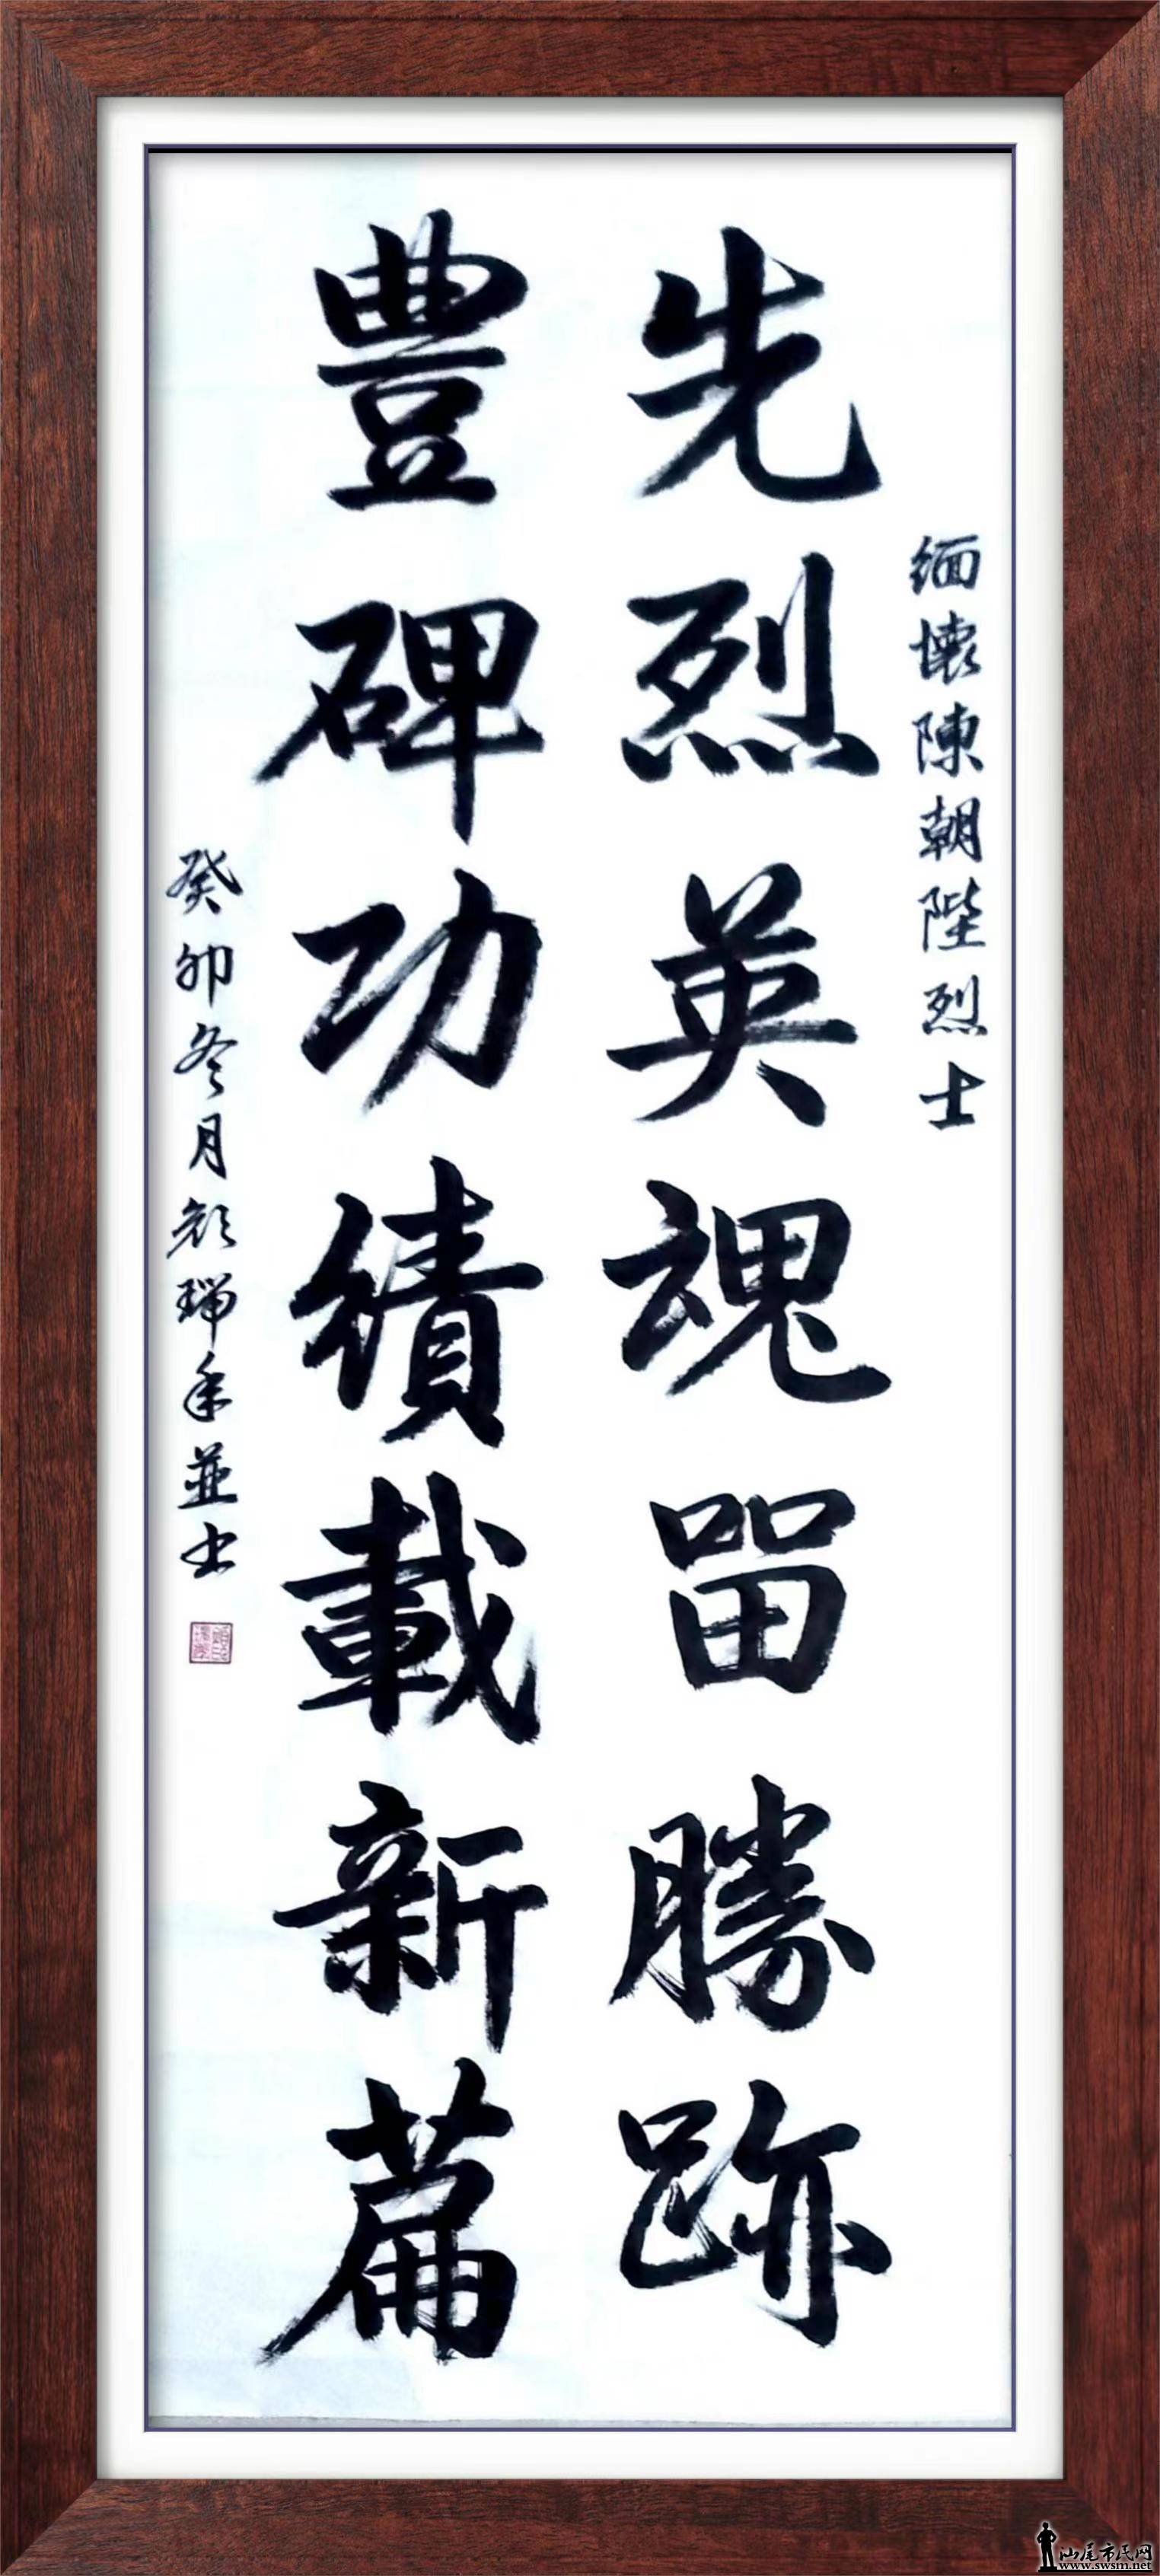 缅懷陳朝陛烈士
先烈英魂畱勝跡
豐碑功績載新篇
癸卯冬月彭瑞年並书
汕尾市民网
www.swsm.net